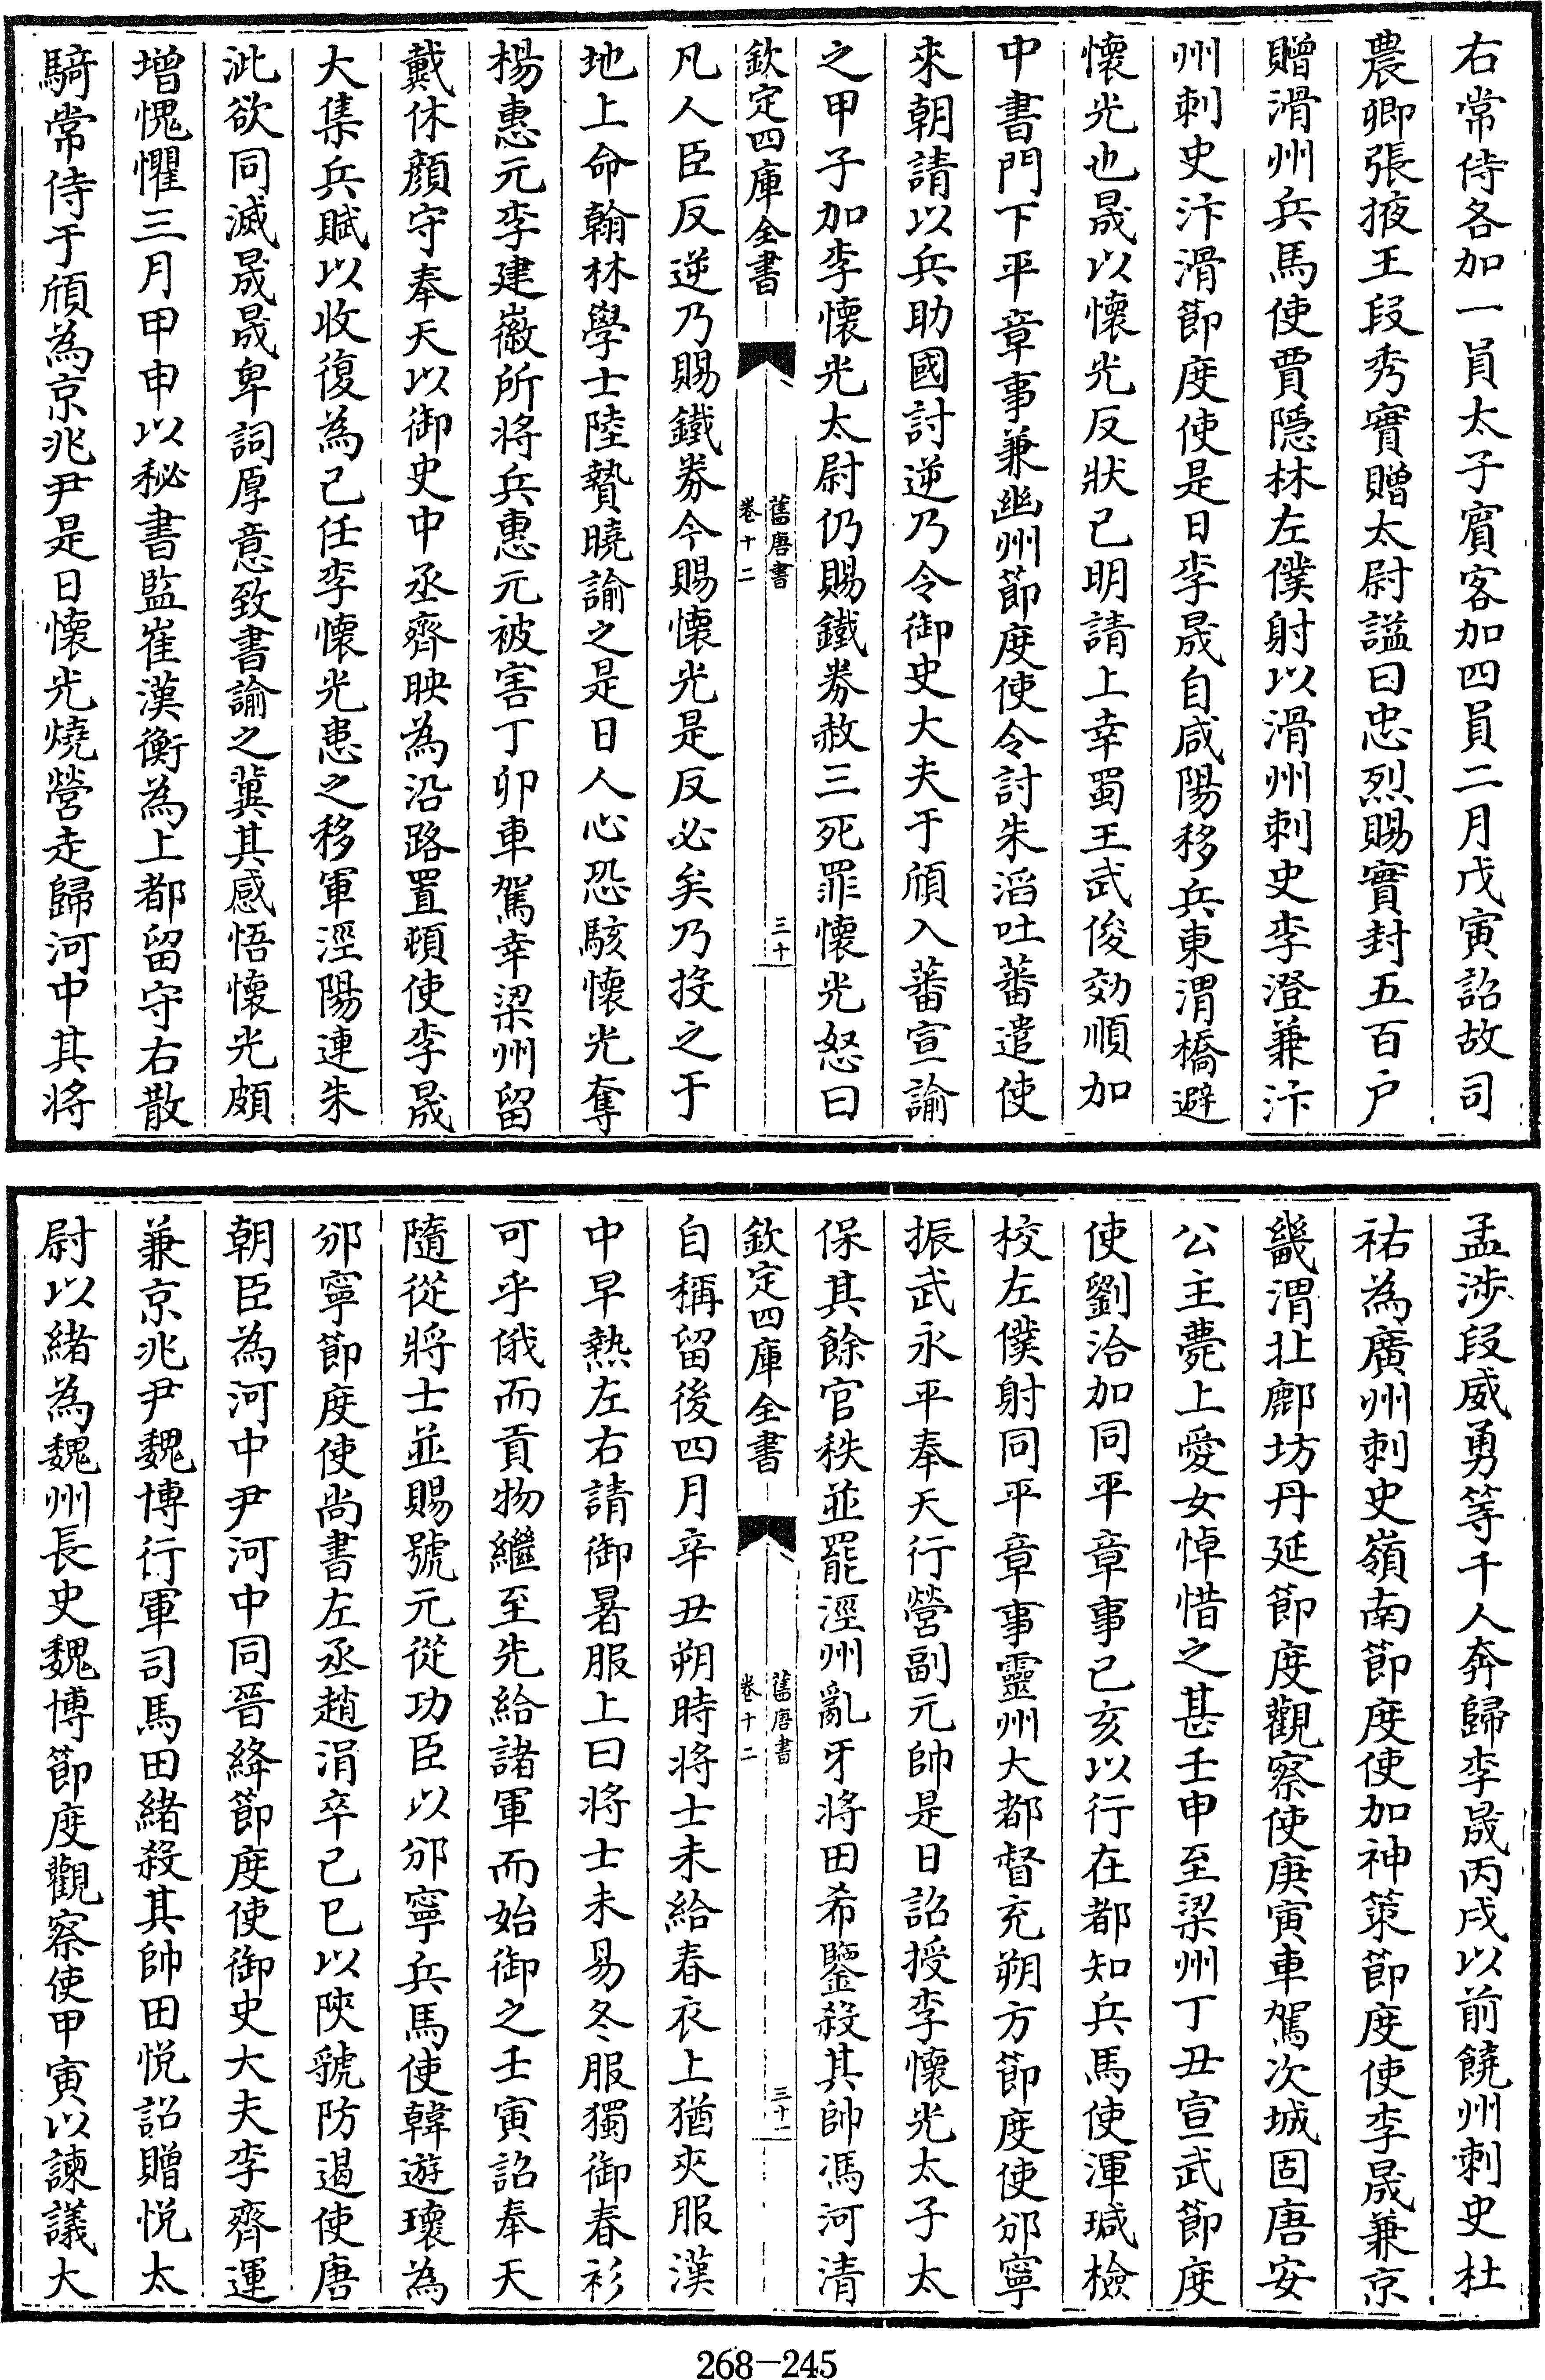 右常侍各加一員太子賓客加四員二月戊寅詔故司
農卿張掖王段秀實贈太尉謚曰忠烈賜實封五百户
贈滑州兵馬使賈隱林左僕射以滑州刺史李澄兼汴
州刺史汴滑節度使是日李晟自咸陽移兵東渭橋避
懷光也晟以懷光反狀已明請上幸蜀王武俊効順加
中書門下平章事兼幽州節度使令討朱滔吐蕃遣使
來朝請以兵助國討逆乃令御史大夫于頎入蕃宣諭
之甲子加李懷光太尉仍賜鐵券赦三死罪懷光怒曰
欽定四庫全書
舊唐書
卷十二
三十
凡人臣反逆乃賜鐵券今賜懷光是反必矣乃投之于
地上命翰林學士陸贄曉諭之是日人心恐駭懷光奪
楊惠元李建徽所将兵惠元被害丁卯車駕幸梁州留
戴休顔守奉天以御史中丞齊映為沿路置頓使李晟
大集兵賦以收復為己任李懷光患之移軍涇陽連朱
泚欲同滅晟晟卑詞厚意致書諭之冀其感悟懷光頗
增愧懼三月甲申以秘書監崔漢衡為上都留守右散
騎常侍于頎為京兆尹是日懷光燒營走歸河中其将
孟涉段威勇等千人奔歸李晟丙戌以前饒州刺史杜
祐為廣州刺史嶺南節度使加神策節度使李晟兼京
畿渭北鄜坊丹延節度觀察使庚寅車駕次城固唐安
公主薨上愛女悼惜之甚壬申至梁州丁丑宣武節度
使劉洽加同平章事已亥以行在都知兵馬使渾瑊檢
校左僕射同平章事靈州大都督充朔方節度使邠寧
振武永平奉天行營副元帥是日詔授李懷光太子太
保其餘官秩並罷涇州亂牙将田希鑒殺其帥馮河清
欽定四庫全書
舊唐書
卷十二
三十一
自稱留後四月辛丑朔時将士未給春衣上猶夾服漢
中早熱左右請御暑服上曰将士未易冬服獨御春衫
可乎俄而貢物繼至先給諸軍而始御之壬寅詔奉天
隨從將士並賜號元從功臣以邠寧兵馬使韓遊瓌為
邠寧節度使尚書左丞趙涓卒己巳以陝虢防遏使唐
朝臣為河中尹河中同晉絳節度使御史大夫李齊運
兼京兆尹魏博行軍司馬田緒殺其帥田悅詔贈悅太
尉以緒為魏州長史魏博節度觀察使甲寅以諫議大
268-245